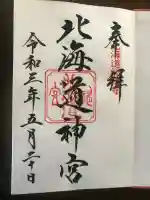 奉拝
北海道神宮
令和三年五月二十日